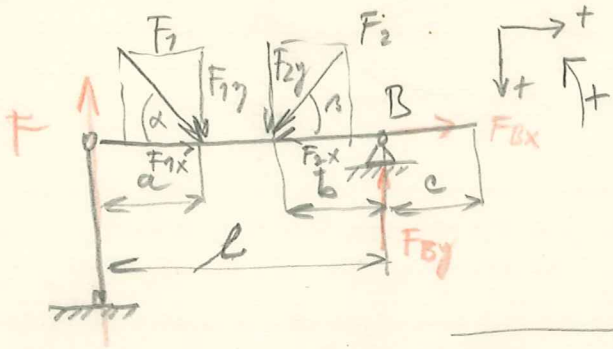 F₁ F₂
F₁y F₂y
+
+
+
F α β B
F₁x F₂x F_Bx
a b c
l F_By